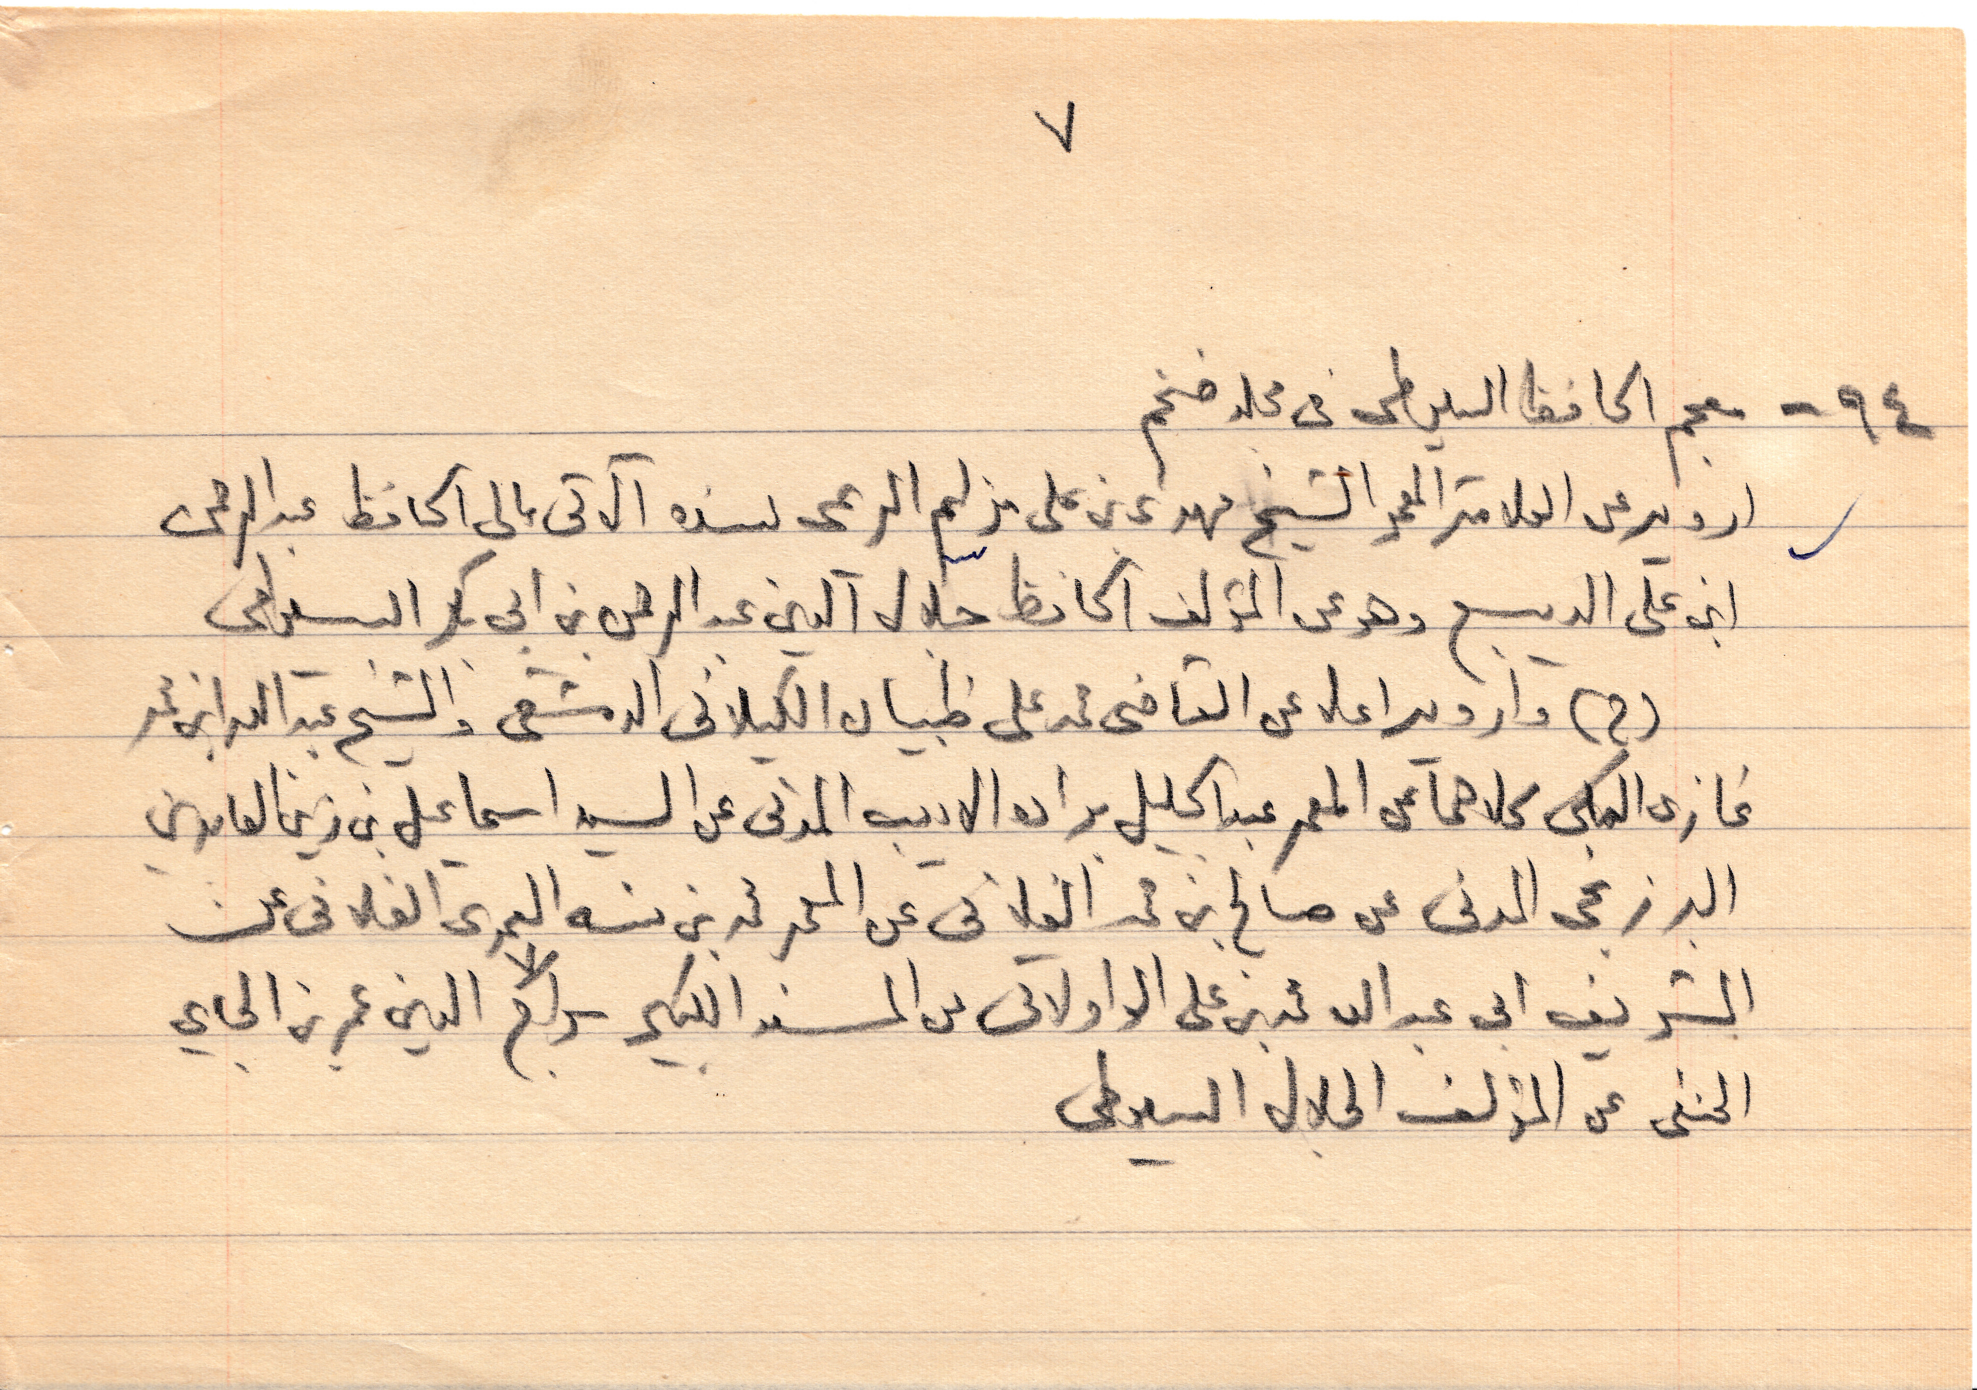 ٧
٩٤ - معجم الحافظ السيوطي في مجلد ضخم
ارويه عن العلامة المعمر الشيخ مهدي بن علي مزلم الريمي بسنده الآتي إلى الحافظ عبد الرحمن
ابن علي الديبع وهو عن المؤلف الحافظ جلال الدين عبد الرحمن بن ابي بكر السيوطي
(ح) وارويه اعلا عن القاضي محمد علي ظبيان الكيلاني الدمشقي والشيخ عبد الله ابن محمد
غازي المكي كلاهما عن المعمر عبد الجليل براده الاديب المدني عن السيد اسماعيل بن زين العابدين
البرزنجي المدني عن صالح بن محمد الفلاني عن المعمر محمد بن سنه العمري الفلاني عن
الشريف ابي عبد الله محمد بن علي الاولاتي عن المسند الكبير سراج الدين عمر بن الجاي
الحنفي عن المؤلف الجلال السيوطي